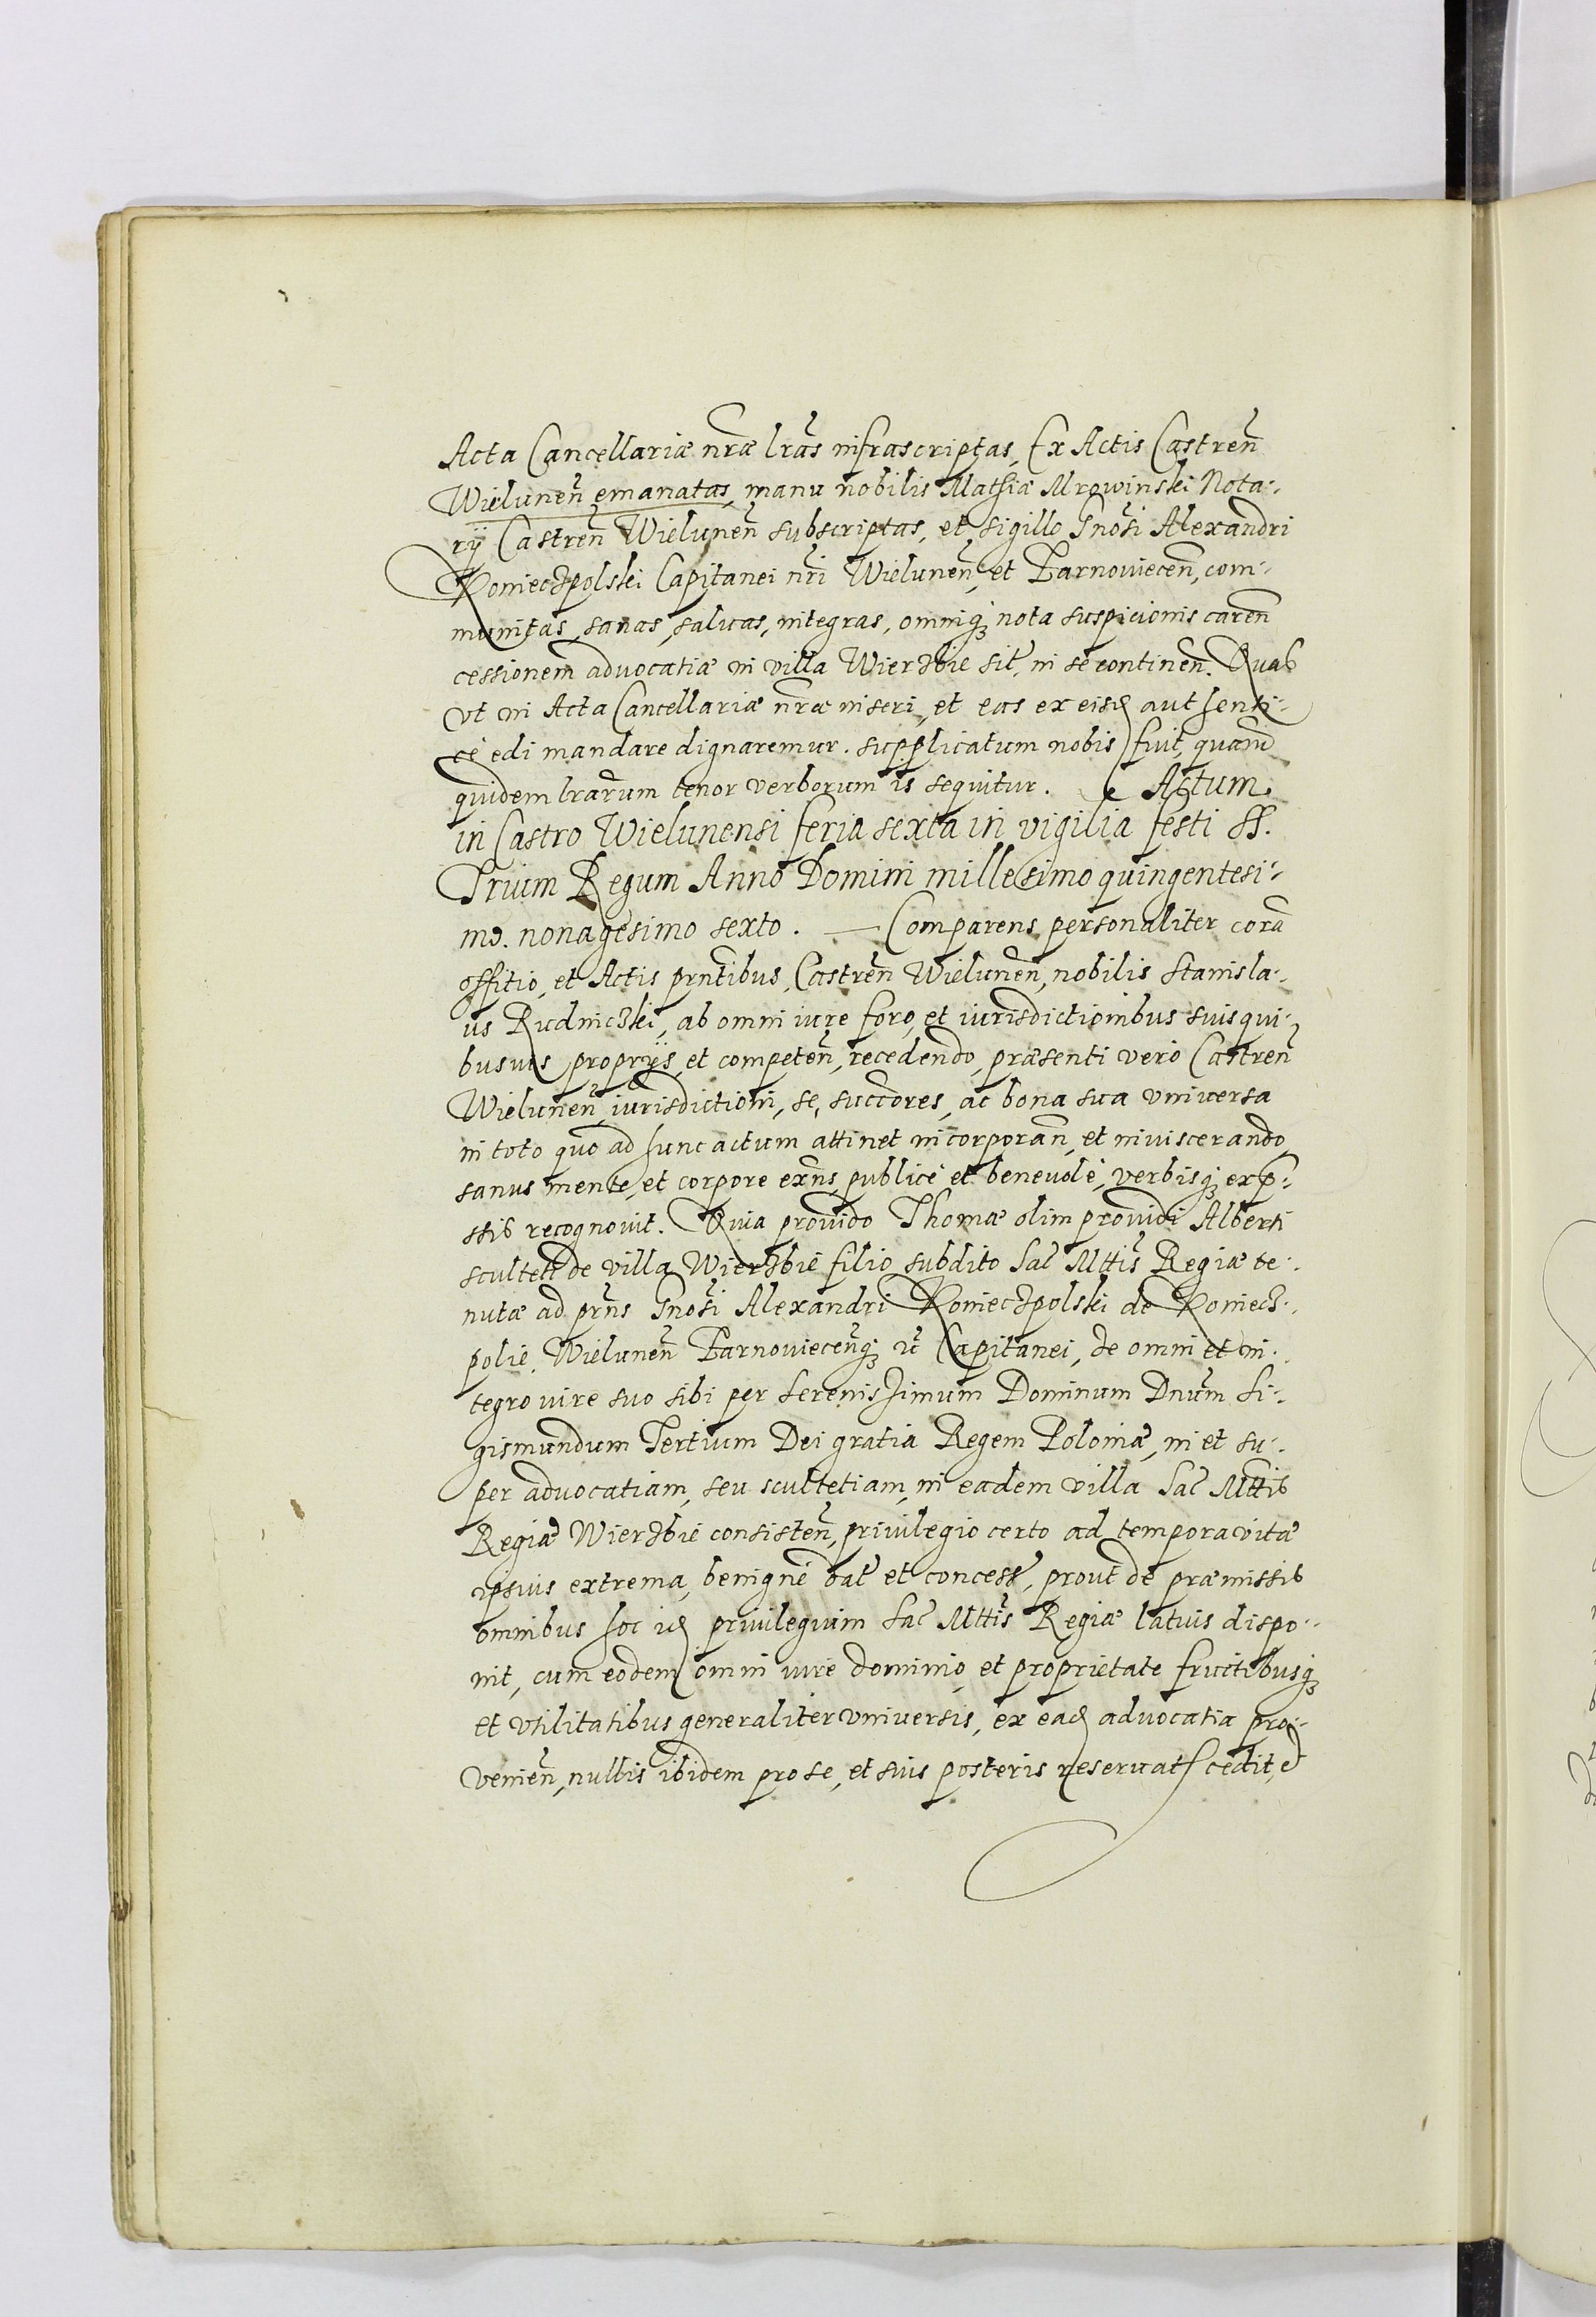 Acta Cancellariæ nr̃æ lr̃as infrascriptas, Ex Actis Castren̄
Wielunen̄ emanatas, manu nobilis Mathiæ Mrowinski Nota-
rÿ Castren̄ Wielunen̄ subscriptas, et sigillo Gnosi Alexandri
Konieczpolski Capitanei nr̃i Wielunen̄, et Tarnowiecen̄, com-
munitas, sanas, saluas, integras, omniq; nota suspicionis caren̄
cessionem aduocatiæ in villa Wierzbie sit̃, in se continen̄. Quas
vt in Acta Cancellariæ nr̃æ inseri, et eas ex eisd̃ authenti-
cè edi mandare dignaremur. supplicatum nobis fuit, quarũ
quidem lr̃arum tenor verborum is sequitur. Actum
in Castro Wielunensi feria sexta in vigilia festi SS.
Trium Regum Anno Domini millesimo quingentesi-
mo. nonagesimo sexto. — Comparens personaliter corã
offitio, et Actis prn̄tibus, Castren̄ Wielunen̄, nobilis Stanisla-
us Rudniczki, ab omni iure foro, et iurisdictionibus suis qui-
busuis proprÿs, et competen̄, recedendo, præsenti vero Castren̄
Wielunen̄ iurisdictioni, se, succõres, ac bona sua vniuersa
in toto quo ad hunc actum attinet incorporan̄, et inuiscerando
sanus mente, et corpore exn̄s, publicè et beneuolè, verbisq; exp̄-
ssis recognouit. Quia prouido Thomæ olim prouidi Alberti
sculteti de villa Wierzbie filio, subdito Sac̃ Mttis̃ Regiæ te-
nutæ ad prn̄s Gnosi Alexandri Konieczpolski de Koniecz-
polie, Wielunen̄ Tarnowiecen̄q; ic̃ Capitanei, de omni et in-
tegro iure suo sibi per Serenissimum Dominum Dnũm Si-
gismundum Tertium Dei gratia Regem Poloniæ, in et su-
per aduocatiam, seu scultetiam, in eadem villa Sac̃ Mttis̃
Regiæ Wierzbie consisten̄, priuilegio certo ad tempora vitæ
ipsius extrema, benignè dat̃ et concess̃, prout de præmissis
omnibus hoc id̃ priuilegium Sac̃ Mttis̃ Regiæ latius dispo-
nit, cum eodem omni iure dominio, et proprietate fructibusq;
et vtilitatibus generaliter vniuersis, ex ead̃ aduocatia pro-
venien̄, nullis ibidem pro se, et suis posteris reseruat̃ cedit, et